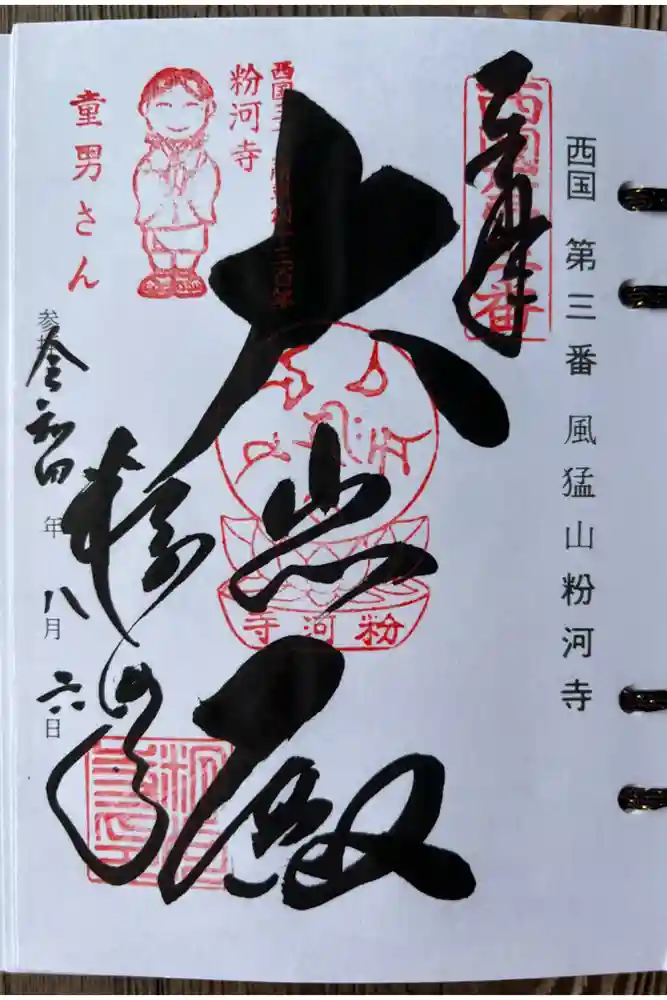 西国 第三番 風猛山粉河寺
奉拝
西国第三番
大悲殿
粉河寺
粉河寺
童男さん
参拝
令和四年八月六日
粉河寺